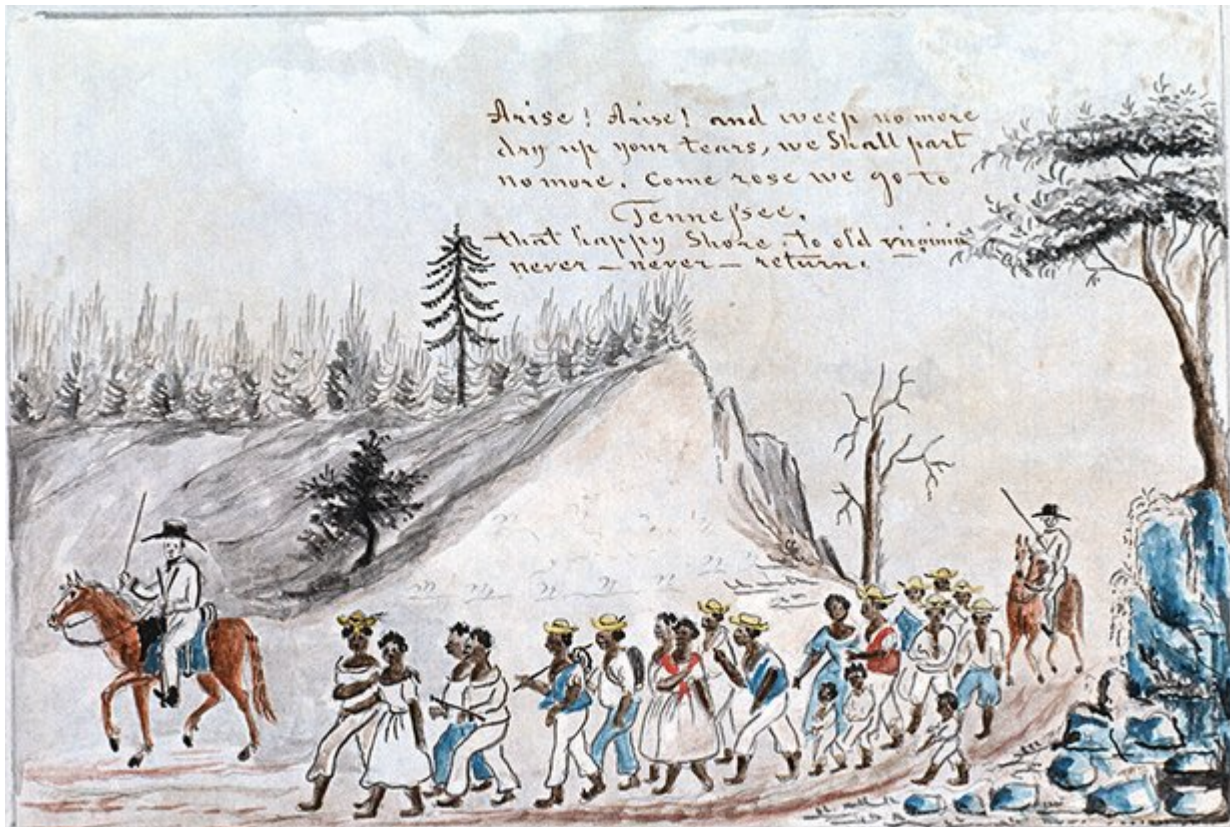 Arise! Arise! and weep no more
dry up your tears, we Shall part
no more. Come rose we go to
Tenneſsee,
that happy Shore. to old virginia
never – never – return.